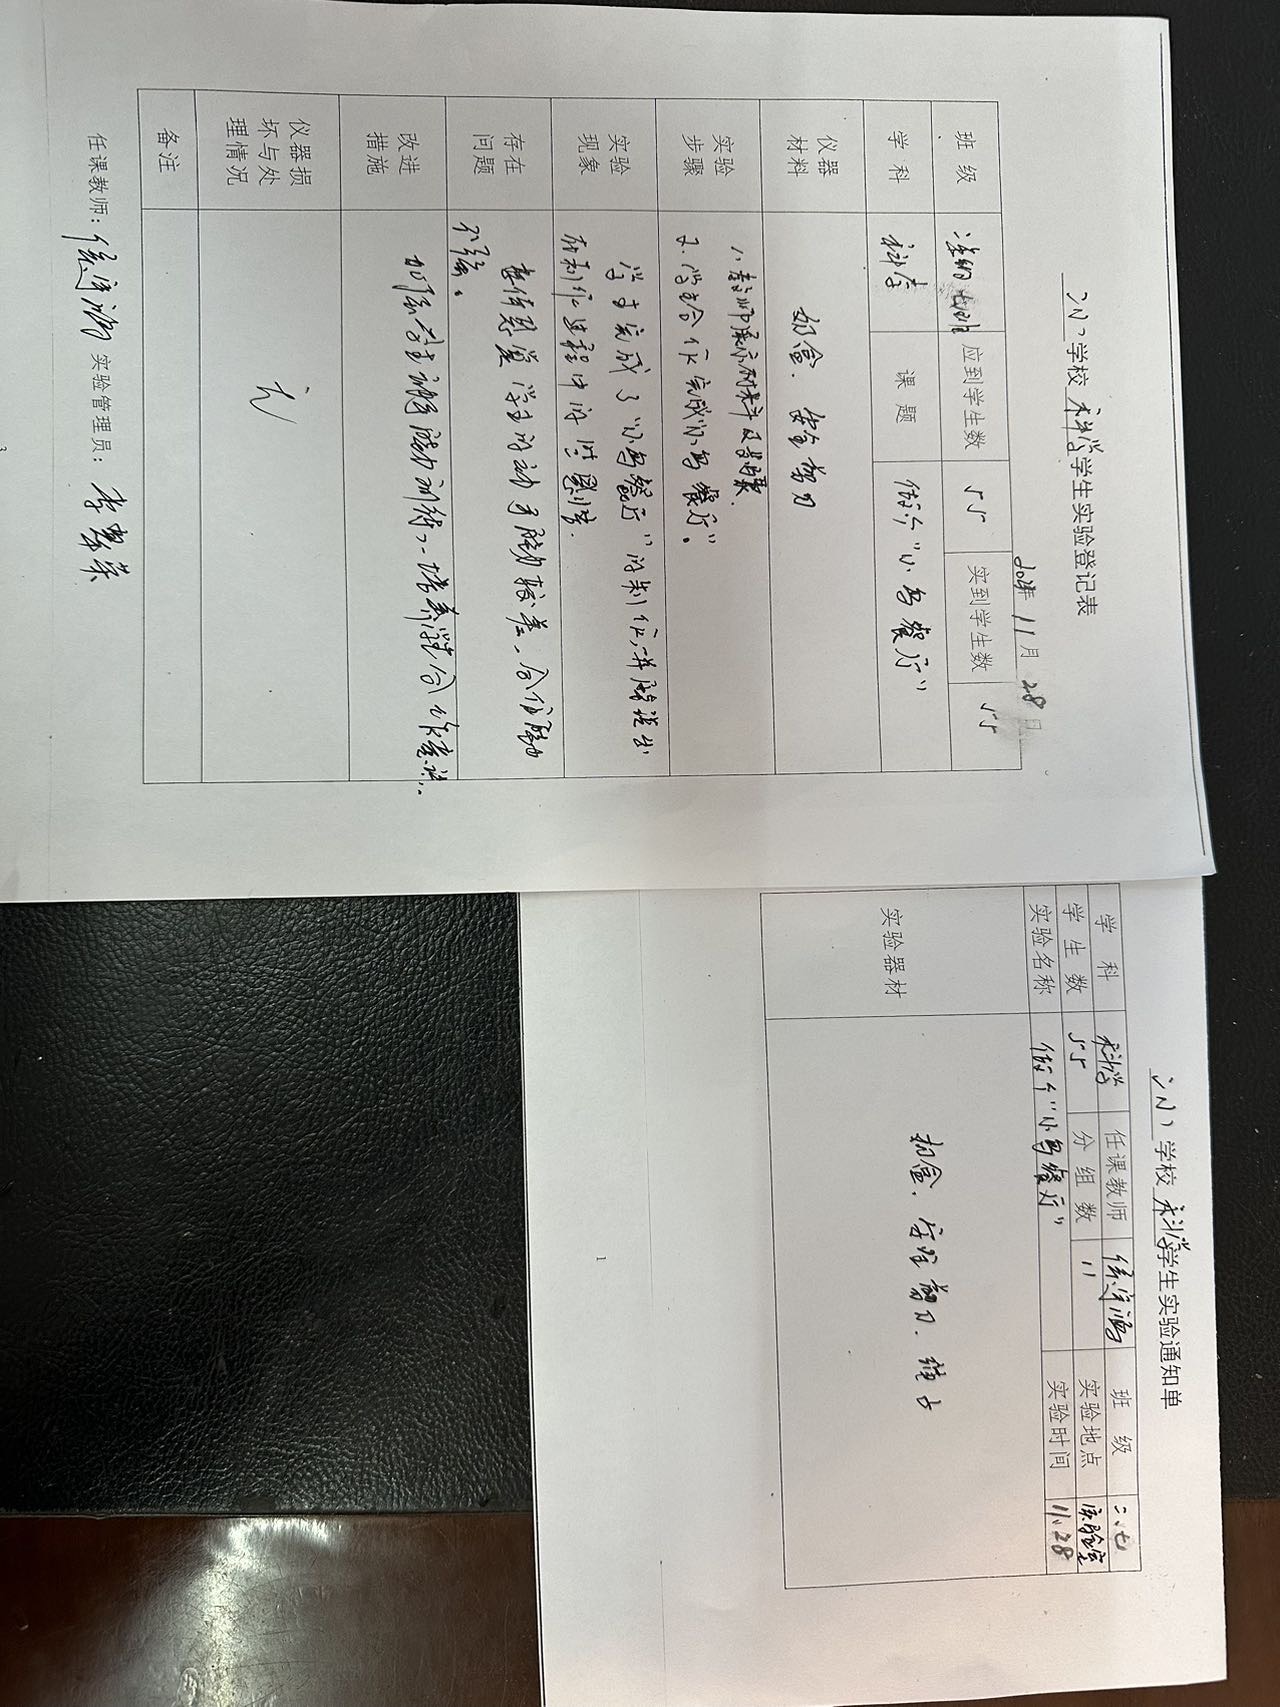 学校科学学生实验登记表
年 11月 28日
班 级 应到学生数 55 实到学生数 55
学 科 科学 课 题 做个“小鸟餐厅”
仪器
材料
奶盒、安全剪刀
实验
步骤
1、教师展示材料及步骤.
2、学生合作完成“小鸟餐厅”。
实验
现象
学生完成了“小鸟餐厅”的制作,并能说出
在制作过程中的
存在
问题
学生的动手能力较差、合作能力
不强。
改进
措施
加强学生动手能力训练,培养学生合作意识.
仪器损
坏与处
理情况
无
备注
任课教师: 实验管理员:
3
学校科学学生实验通知单
学 科 科学 任课教师 班 级 二、七
学 生 数 55 分 组 数 11 实验地点 实验室
实验名称 做个“小鸟餐厅” 实验时间 11.28
实验器材
奶盒、安全剪刀、
1